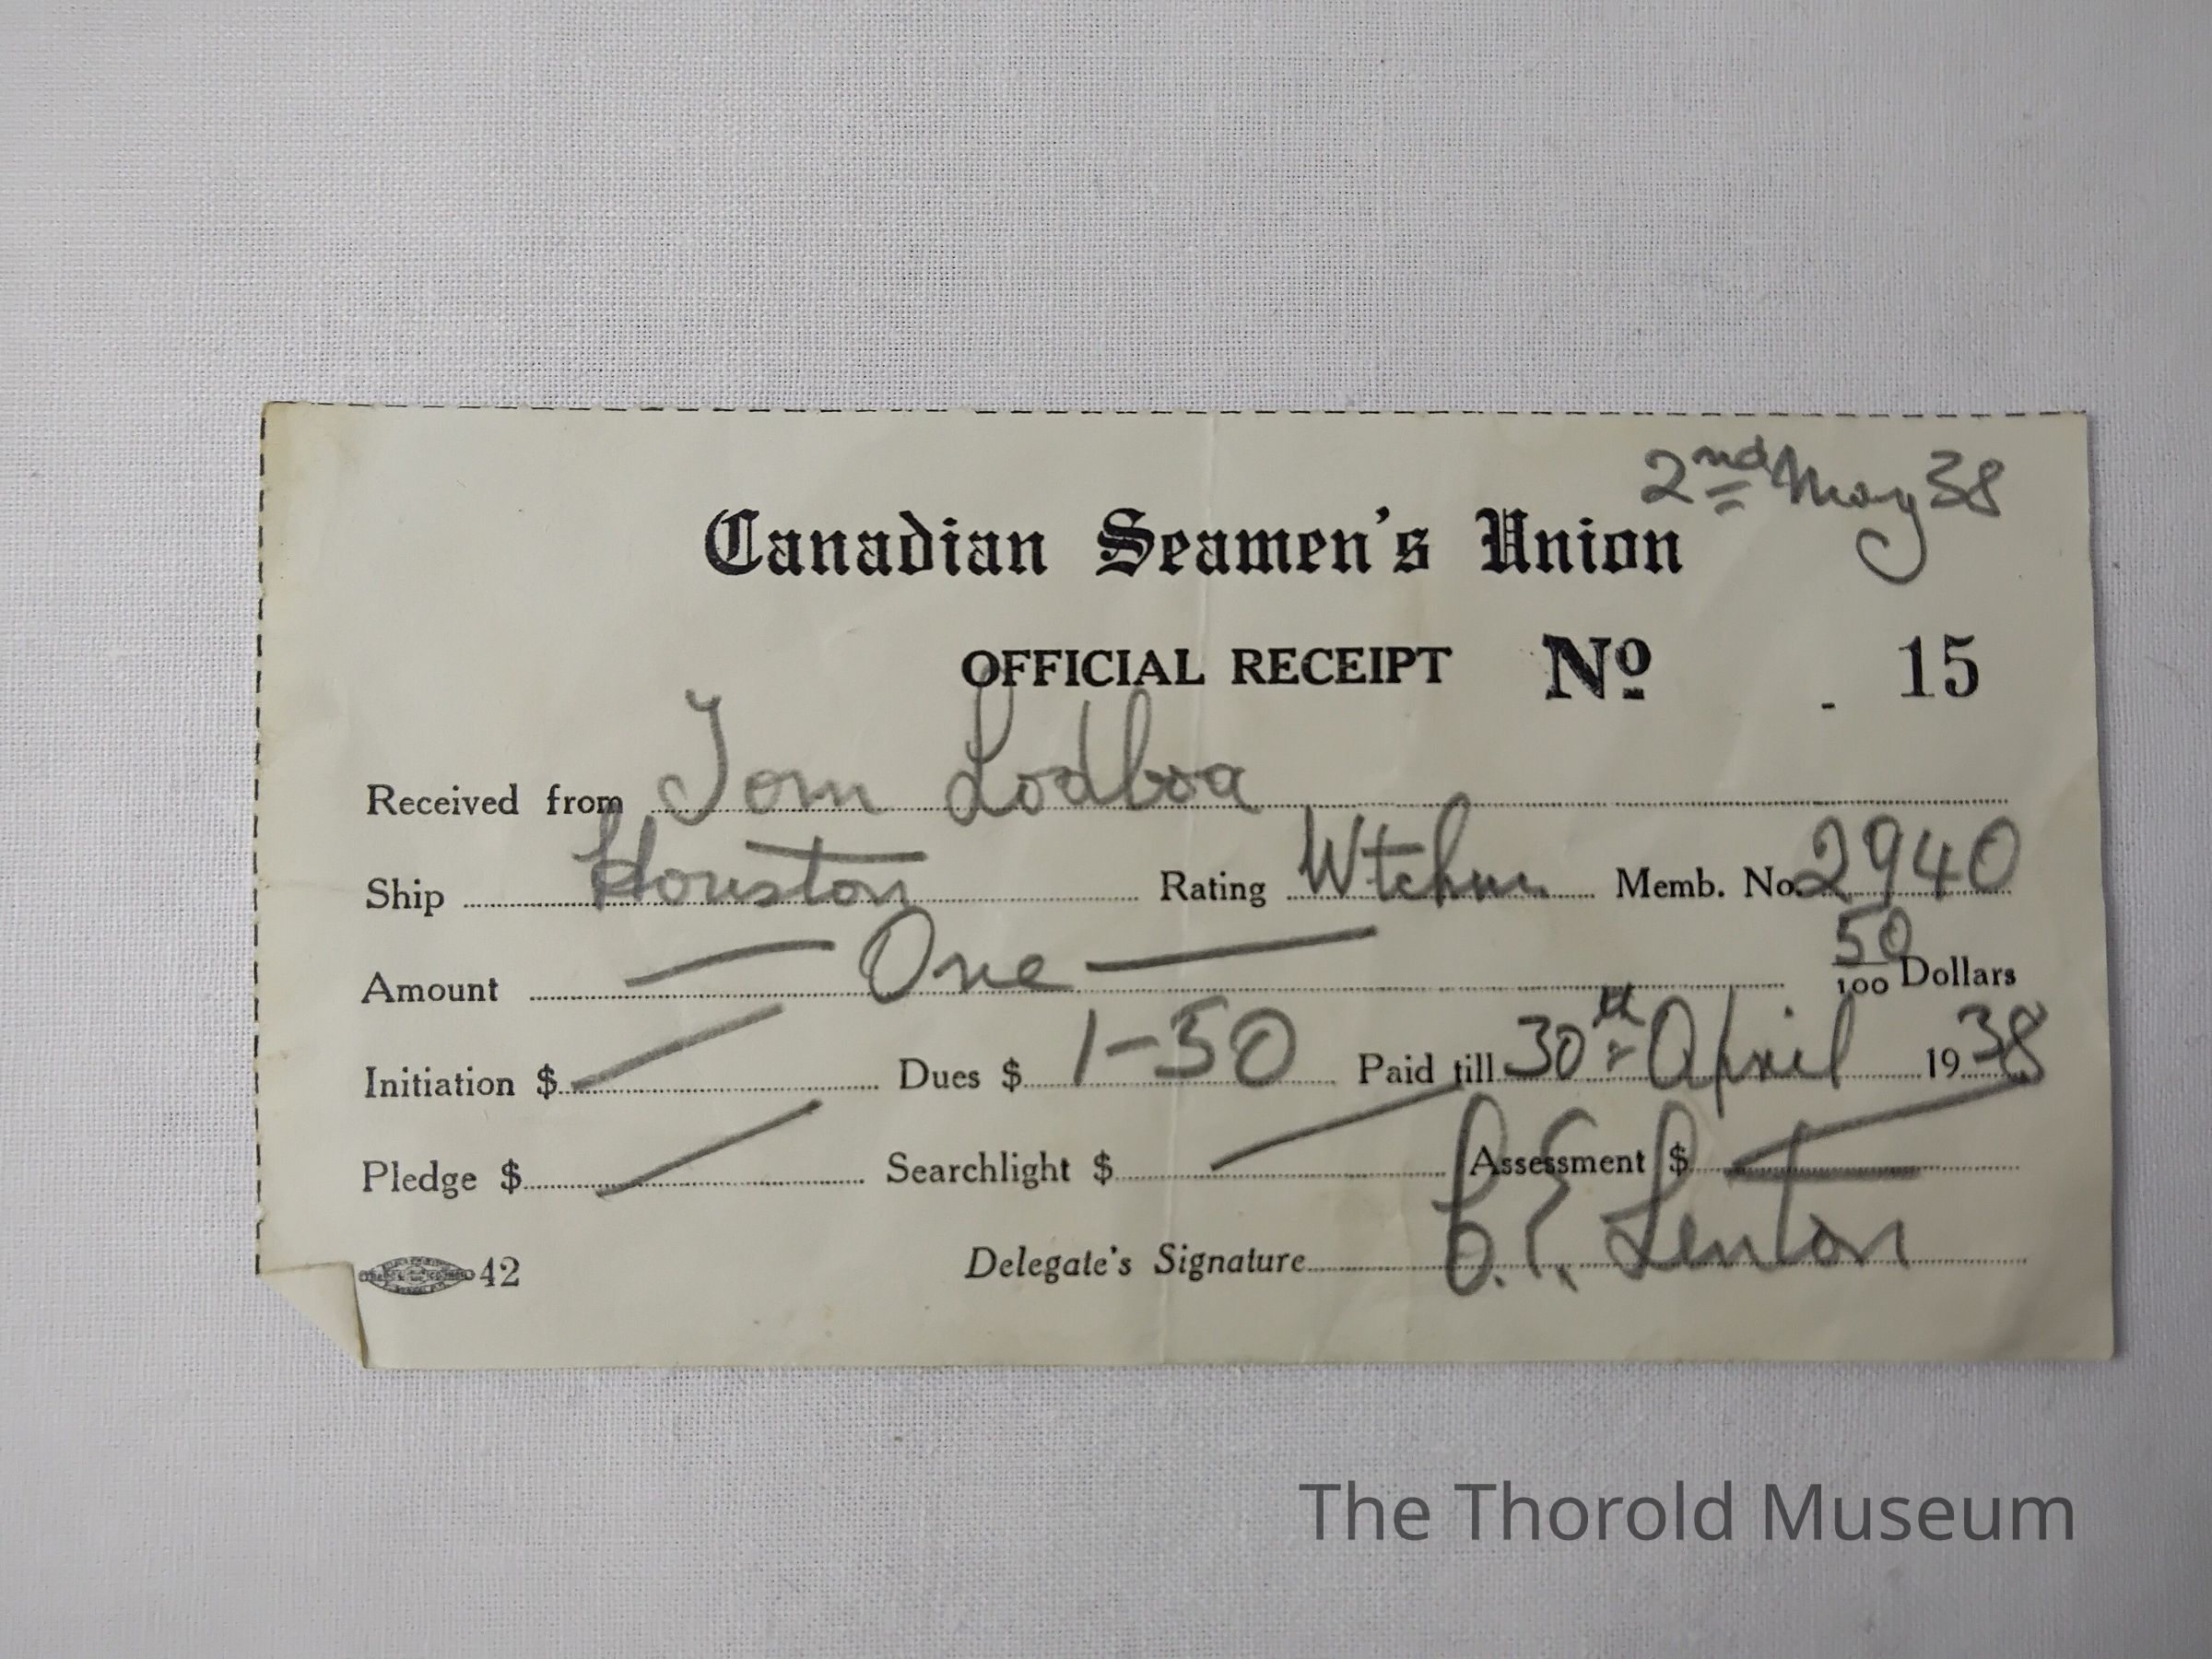 2nd May 38
Canadian Seamen's Union
OFFICIAL RECEIPT No 15
Received from Tom Lodboa
Ship Houston Rating Wtchmn Memb. No. 2940
Amount — One — 50/100 Dollars
Initiation $ Dues $ 1-50 Paid till 30th April 1938
Pledge $ Searchlight $ Assessment $
42 Delegate's Signature Lenton
The Thorold Museum